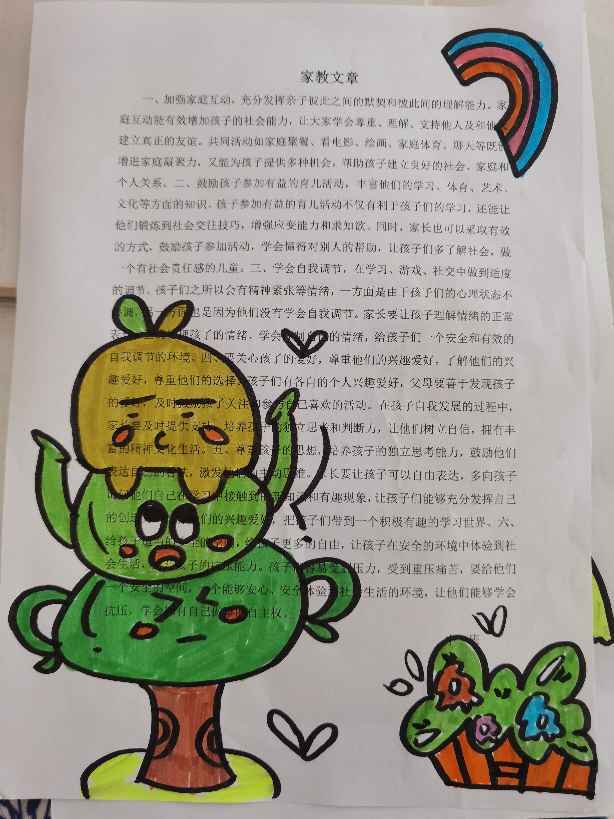 家教文章
一、加强家庭互动，充分发挥亲子彼此之间的默契和彼此间的理解能力。家
庭互动能有效增加孩子的社会能力，让大家学会尊重、理解、支持他人及和他
建立真正的友谊。共同活动如家庭聚餐、看电影、绘画、家庭体育、聊天等既
增进家庭凝聚力，又能为孩子提供多种机会，帮助孩子建立良好的社会、家庭和
个人关系。二、鼓励孩子参加有益的育儿活动，丰富他们的学习、体育、艺术、
文化等方面的知识。孩子参加有益的育儿活动不仅有利于孩子们的学习，还能让
他们锻炼到社会交往技巧，增强应变能力和求知欲。同时，家长也可以采取有效
的方式，鼓励孩子参加活动，学会懂得对别人的帮助，让孩子们多了解社会，做
一个有社会责任感的儿童。三、学会自我调节，在学习、游戏、社交中做到适度
的调节。孩子们之所以会有精神紧张等情绪，一方面是由于孩子们的心理状态不
另一方面也是因为他们没有学会自我调节。家长要让孩子理解情绪的正常
孩子的情绪，学会 的情绪，给孩子们一个安全和有效的
自我调节的环境。四、要关心孩子的爱好，尊重他们的兴趣爱好，了解他们的兴
趣爱好，尊重他们的选择。孩子们有各自的个人兴趣爱好，父母要善于发现孩子
及时 关注 参与自己喜欢的活动。在孩子自我发展的过程中，
家长要及时提供支持，培养孩子的独立思考和判断力，让他们树立自信，拥有丰
富的精神文化生活。五、尊重孩子的思想，培养孩子的独立思考能力，鼓励他们
表达自己的 激发 主动思维。家长要让孩子可以自由表达，多向孩子
他们自己在学习中接触到的 知识和有趣现象，让孩子们能够充分发挥自己
的创 们的兴趣爱好，把孩子们带到一个积极有趣的学习世界。六、
给孩子 孩子更多的自由，让孩子在安全的环境中体验到社
会生活， 孩子的 能力。孩子 容易受到压力，受到重压痛苦，要给他们
一个安全的空间，一个能够安心、安全体验 社会生活的环境，让他们能够学会
抗压，学会 有自己 自主权。